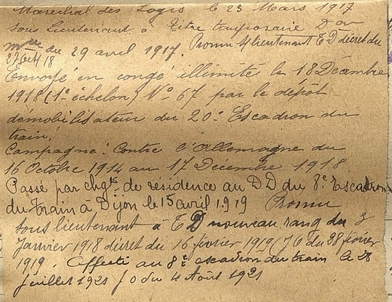 Maréchal des Logis le 23 Mars 1917
sous Lieutenant à titre temporaire D on
melle du 29 avril 1917 Promu s/lieutenant TD décret du
27 oct 18
Envoyé en congé illimité le 18 Décembre
1918 (1e échelon) No 67 par le dépôt
démobilisateur du 20e Escadron du
train.
Campagne: Contre l'Allemagne du
16 Octobre 1914 au 17 Décembre 1918
Passé par chgt de résidence au DD du 8e Escadron
du train à Dijon le 15 avril 1919 Promu
sous lieutenant à TD nouveau rang du
Janvier 1918 décret du 16 février 1919 (JO du 28 février
1919. Affecté au 8e escadron du train le 28
juillet 1921 JO du 4 Août 1921